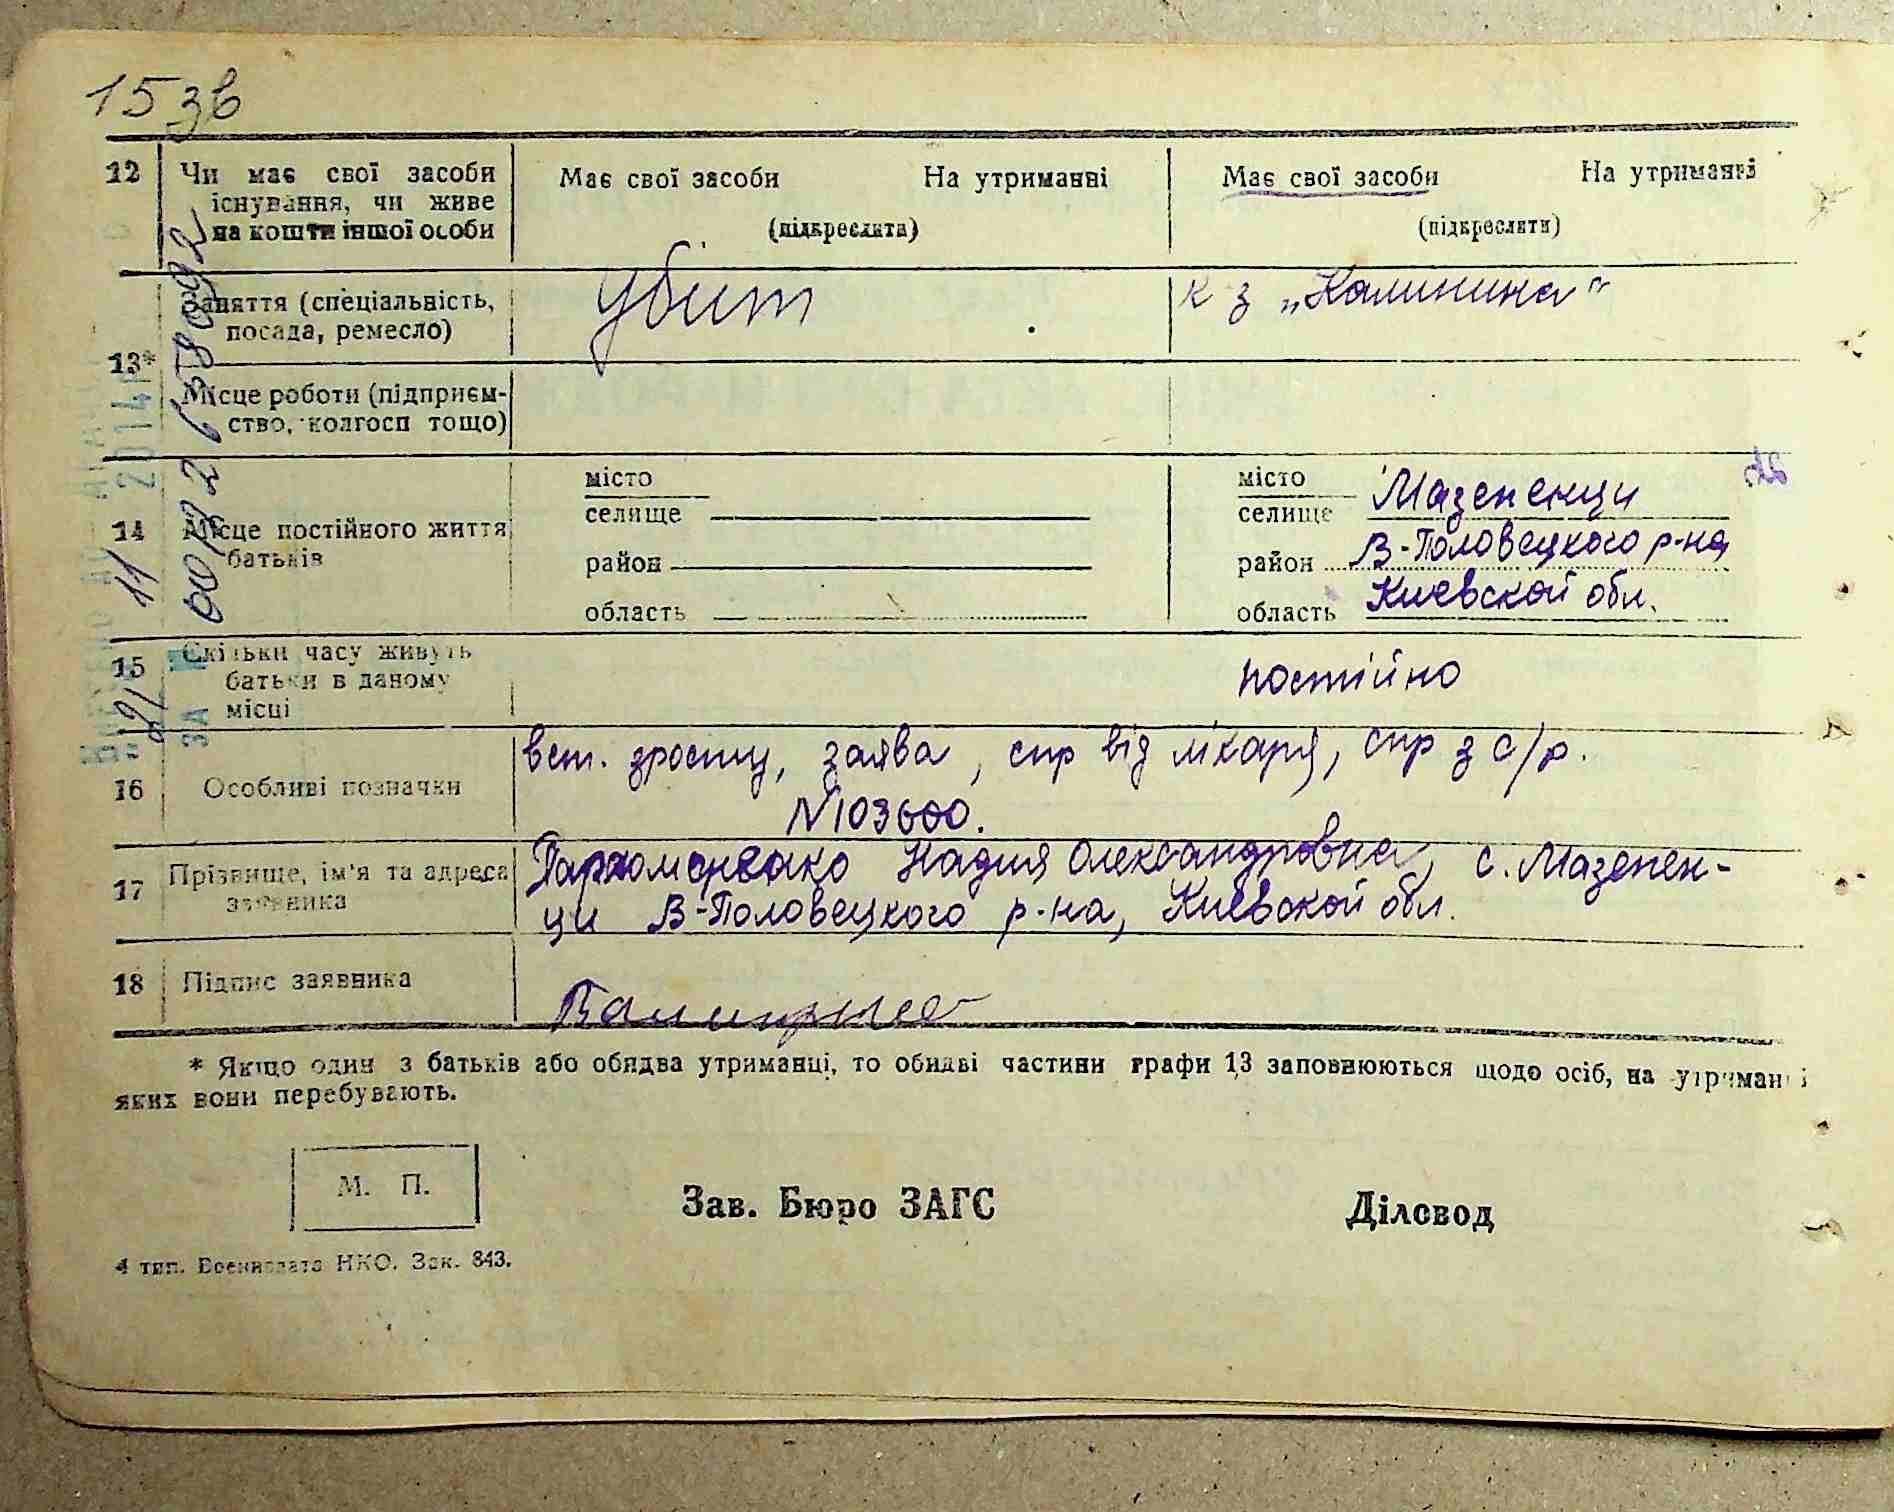 15 зв
12 Чи має свої засоби існування, чи живе на кошти іншої особи
Має свої засоби На утриманні
(підкреслити)
Має свої засоби На утриманні
(підкреслити)
13*
Заняття (спеціальність, посада, ремесло)
Убит
к з „Калинина"
Місце роботи (підприємство, колгосп тощо)
14 Місце постійного життя батьків
місто
селище
район
область
місто
селище Мазепенци
район В-Половецкого р-на
область Киевской обл.
15 Скільки часу живуть батьки в даному місці
постійно
16 Особливі позначки
вст. зросту, заява, спр від лікаря, спр з с/р.
N 103600.
17 Прізвище, ім'я та адреса заявника
Надия Олександровна, с. Мазепен-
ци В-Половецкого р-на, Киевской обл.
18 Підпис заявника
* Якщо один з батьків або обидва утриманці, то обидві частини графи 13 заповнюються щодо осіб, на утриманні
яких вони перебувають.
М. П.
Зав. Бюро ЗАГС
Діловод
4 тип. Воениздата НКО. Зак. 843.